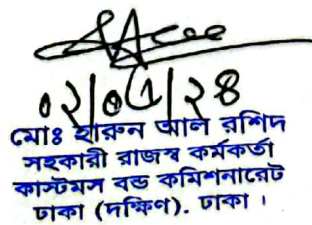 ০২/০৫/২৪
মোঃ হারুন আল রশিদ
সহকারী রাজস্ব কর্মকর্তা
কাস্টমস বন্ড কমিশনারেট
ঢাকা (দক্ষিণ). ঢাকা ।